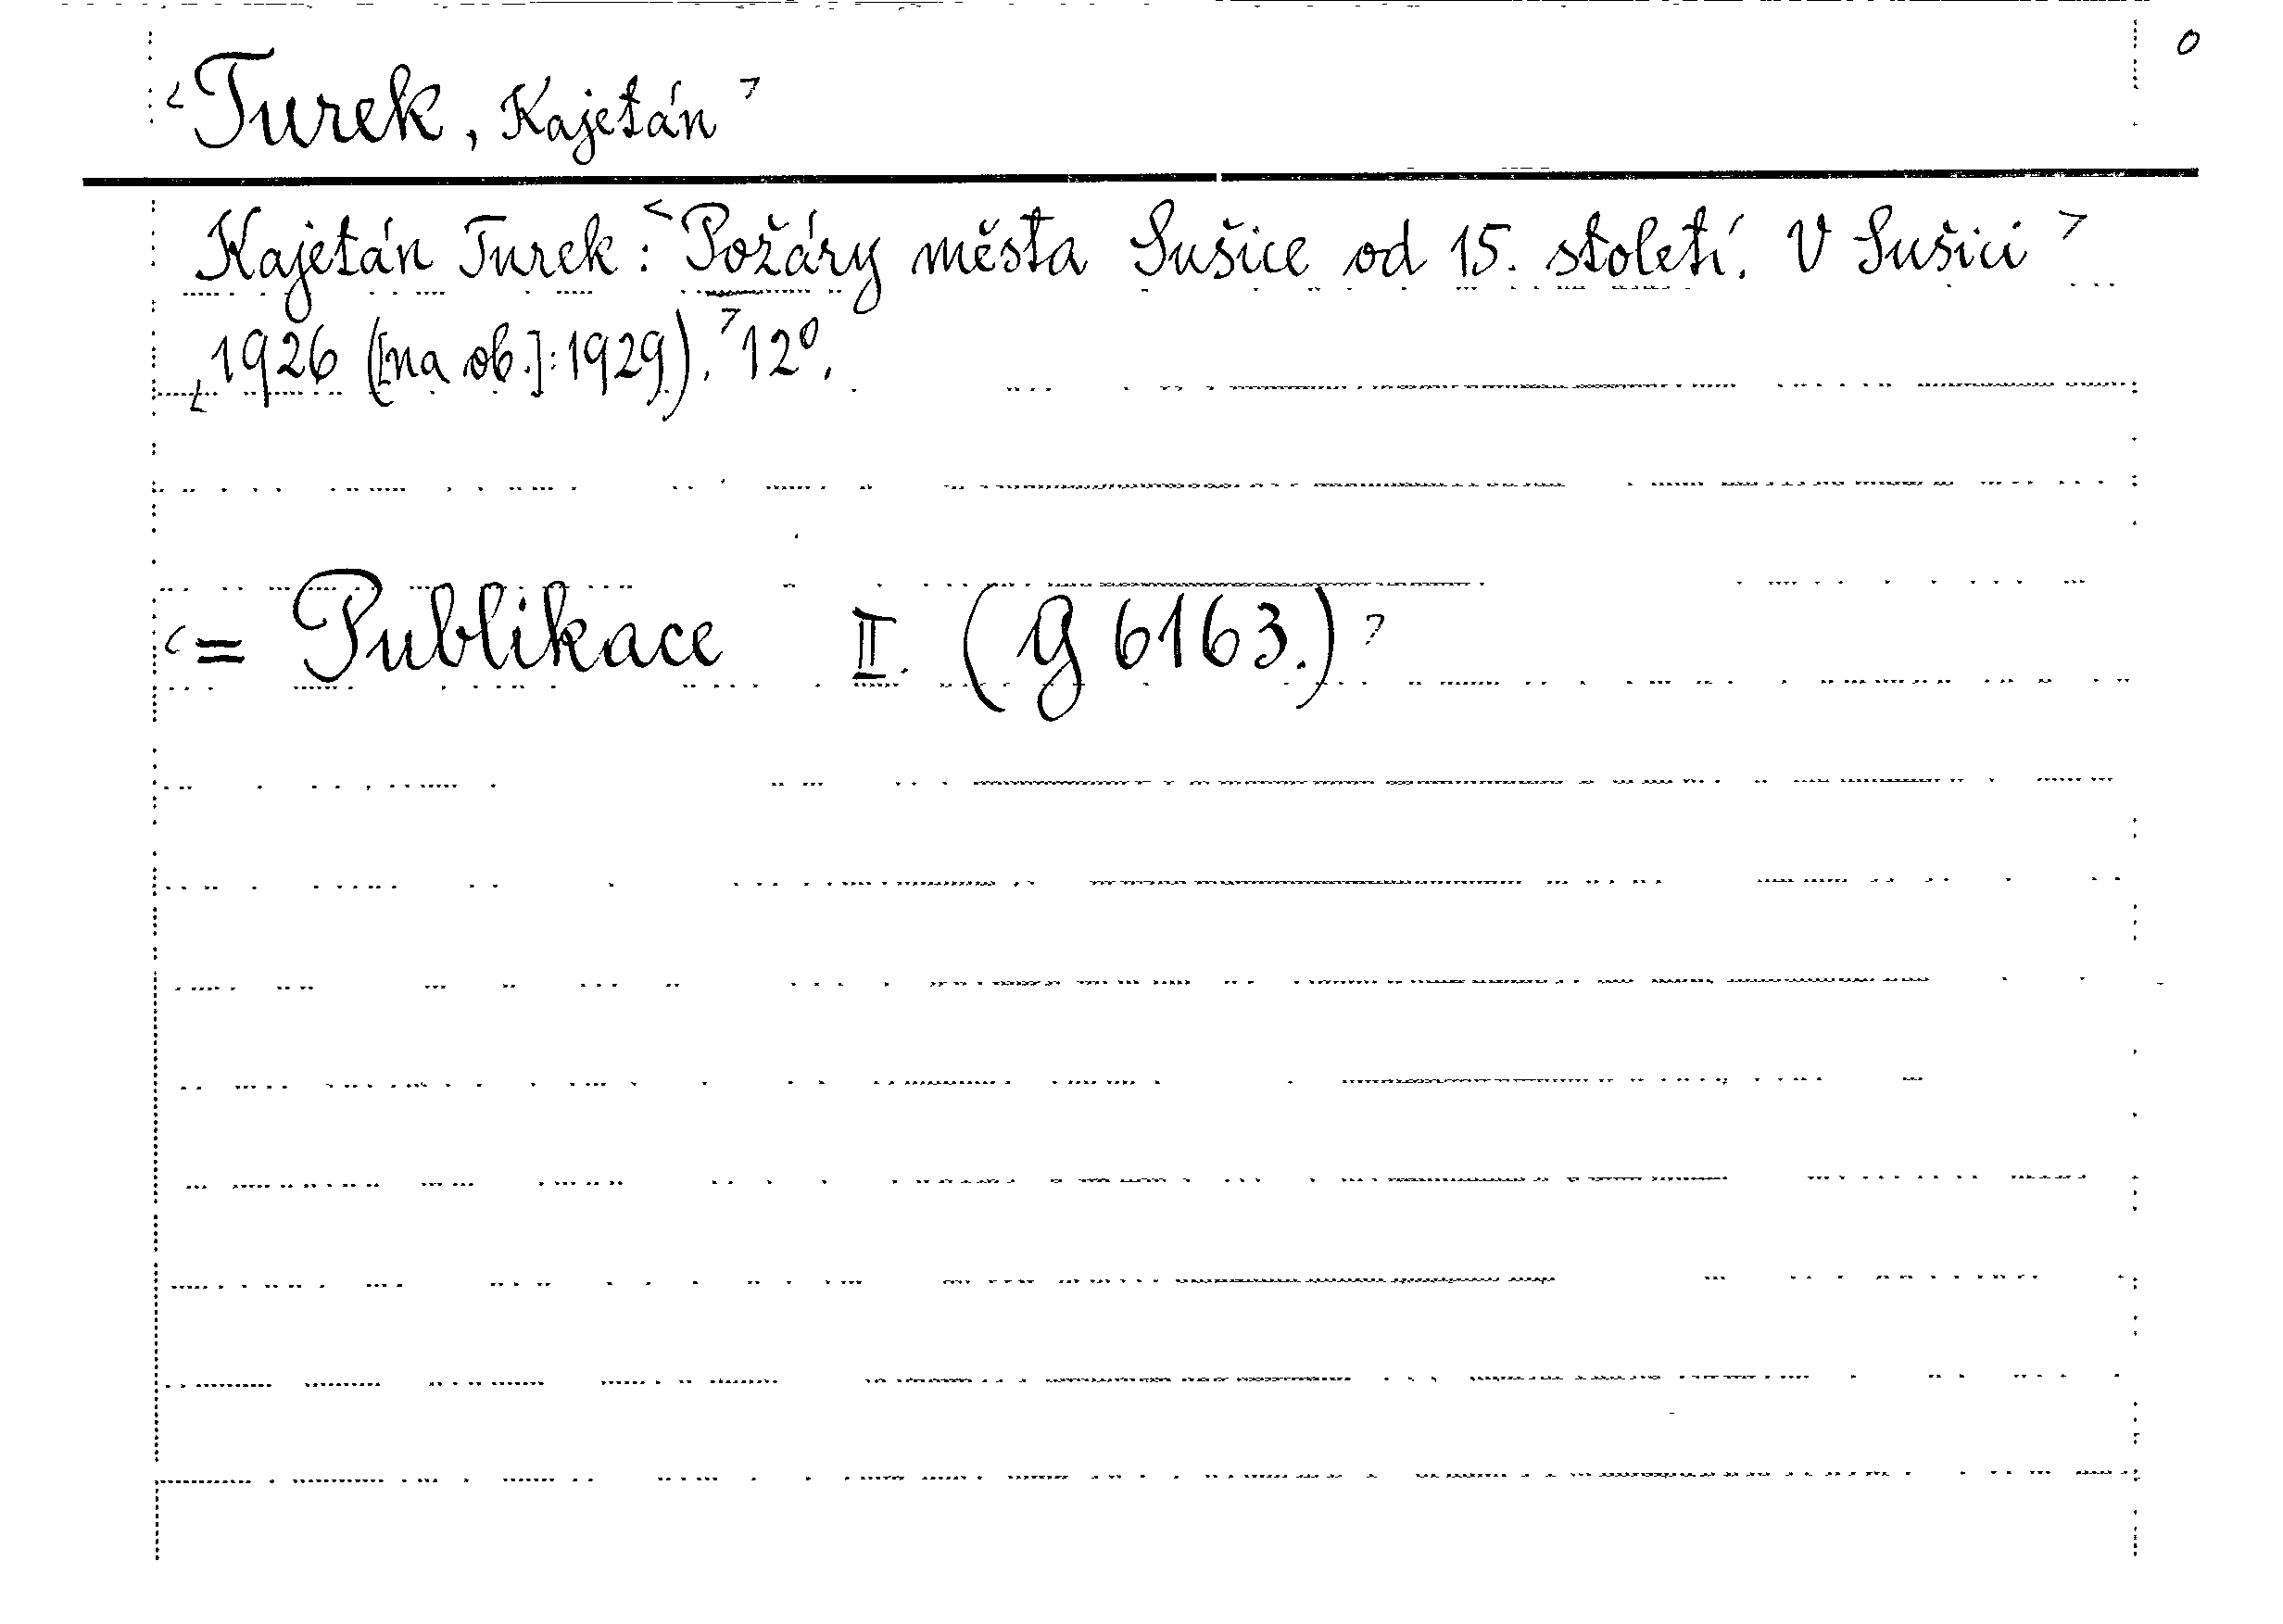 0
<Turek, Kajetán>
Kajetán Turek: <Požáry města Sušice od 15. století. V Sušici>
<1926 ([na ob.]: 1929).> 12°.
<= Publikace II. (G 6163.)>